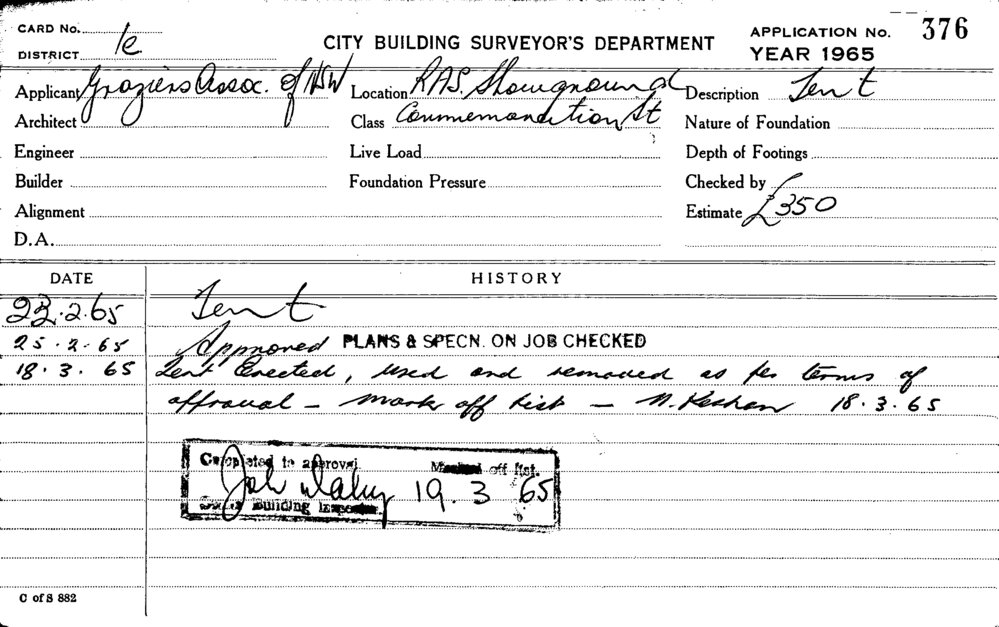 CARD No. 
DISTRICT 1e
CITY BUILDING SURVEYOR'S DEPARTMENT
APPLICATION No. 376
YEAR 1965
Applicant Graziers Assoc. of NSW Location RAS. Showground Description Tent
Architect Class Commemoration St Nature of Foundation
Engineer Live Load Depth of Footings
Builder Foundation Pressure Checked by
Alignment Estimate £350
D.A.
DATE HISTORY
23.2.65 Tent
25.2.65 Approved PLANS & SPECN. ON JOB CHECKED
18.3.65 Tent Erected, used and removed as per terms of
approval – mark off list – 18.3.65
Completed to approval. Marked off list.
19.3 65
Building Inspector.
C of S 882